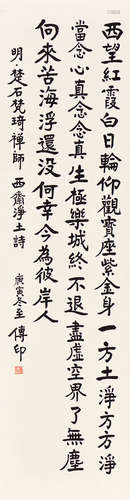 西望紅霞白日輪仰觀寶座紫金身一方土淨方方淨
當念心真念念真生極樂城終不退盡虛空界了無塵
向來苦海浮還没何幸今為彼岸人
明·楚石梵琦禪師 西齋淨土詩 庚寅冬至 傳印